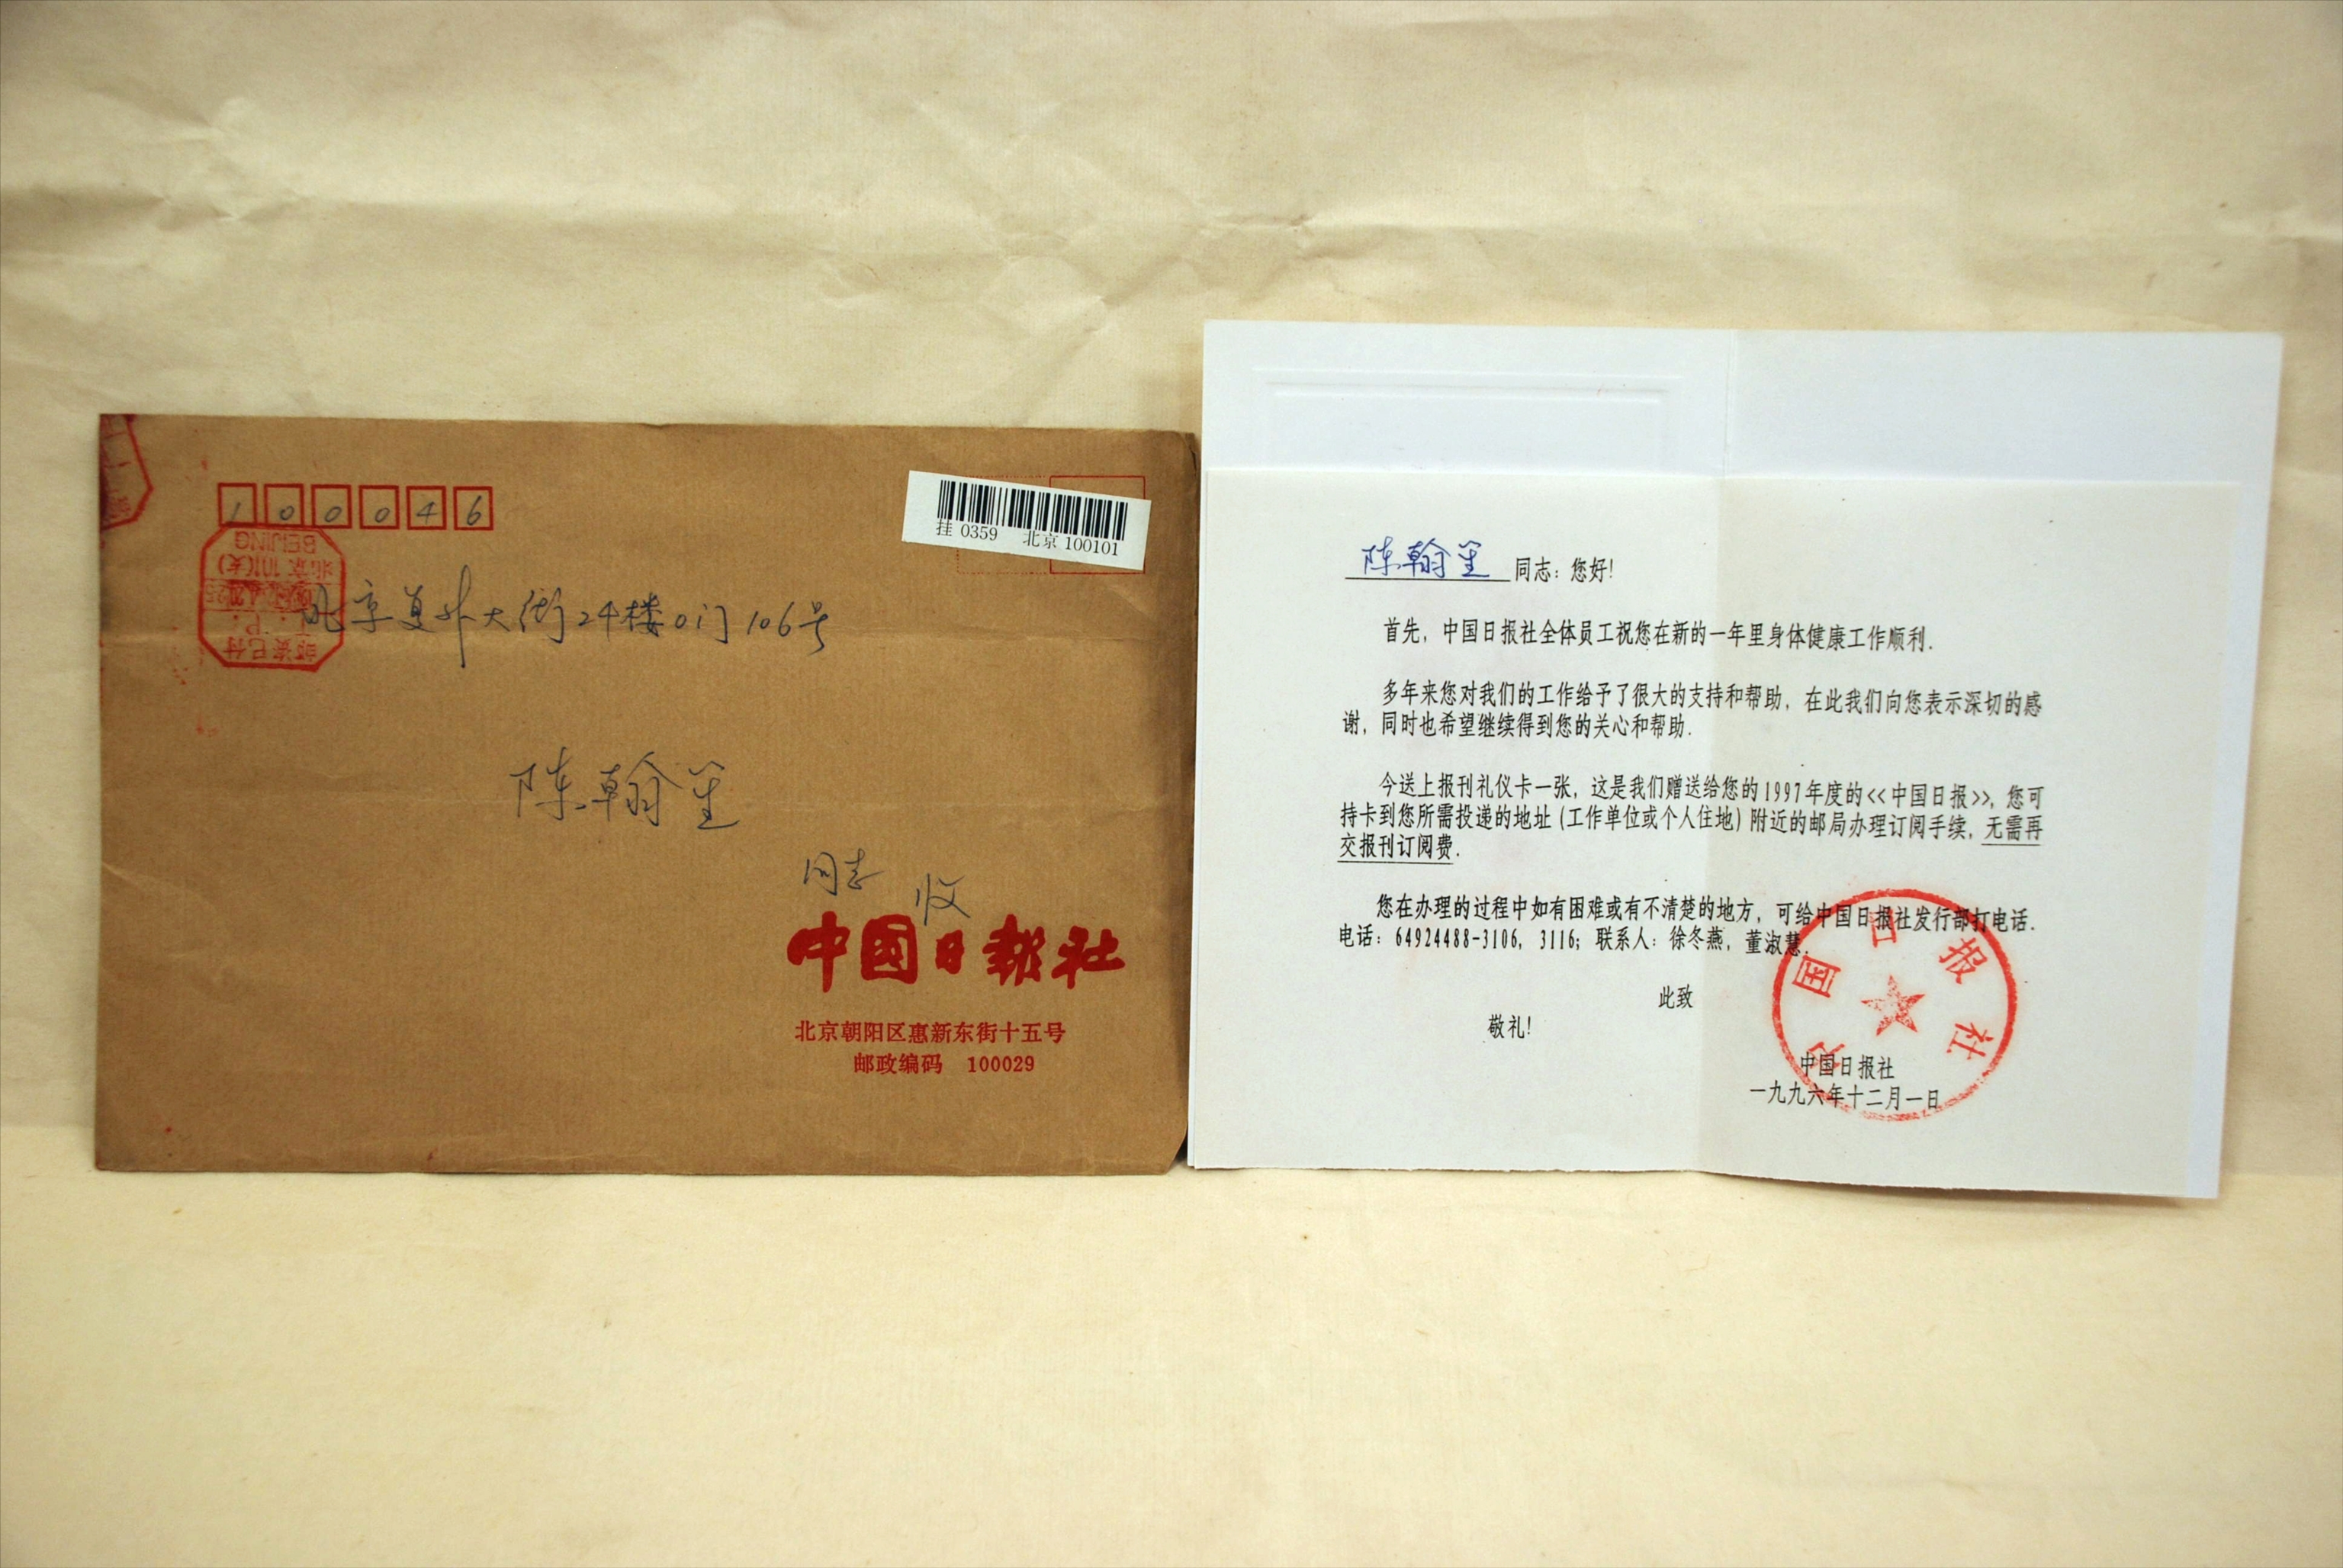 100046
挂 0359 北京 100101
BEIJING
北京 101(支)
邮资已付
北京复外大街24楼0门106号
陈翰笙
同志 收
中国日报社
北京朝阳区惠新东街十五号
邮政编码 100029
陈翰笙 同志: 您好!
首先, 中国日报社全体员工祝您在新的一年里身体健康工作顺利.
多年来您对我们的工作给予了很大的支持和帮助, 在此我们向您表示深切的感
谢, 同时也希望继续得到您的关心和帮助.
今送上报刊礼仪卡一张, 这是我们赠送给您的1997年度的<<中国日报>>, 您可
持卡到您所需投递的地址(工作单位或个人住地)附近的邮局办理订阅手续, 无需再
交报刊订阅费.
您在办理的过程中如有困难或有不清楚的地方, 可给中国日报社发行部打电话.
电话: 64924488-3106, 3116; 联系人: 徐冬燕, 董淑慧.
此致
敬礼!
中国日报社
中国日报社
一九九六年十二月一日